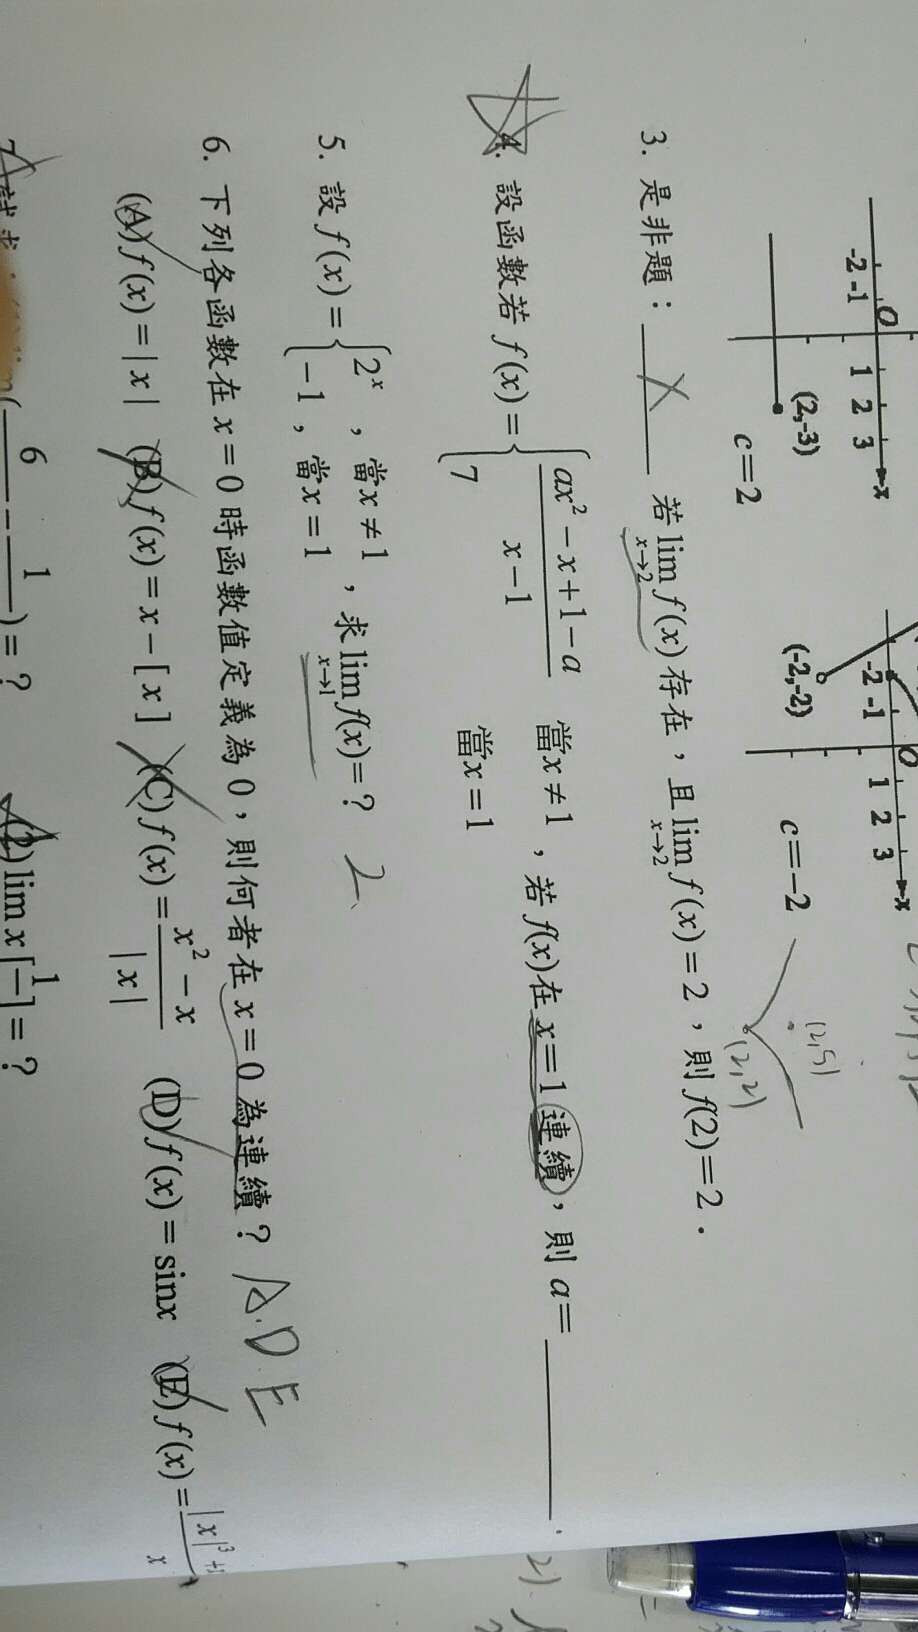 -2 -1 O 1 2 3 x
(2,-3)
c=2
-2 -1 O 1 2 3 x
(-2,-2)
c=-2
(2,5)
(2,2)
3. 是非題：X 若 lim x→2 f(x) 存在，且 lim x→2 f(x)=2，則 f(2)=2．
4. 設函數若 f(x)={ (ax²-x+1-a)/(x-1) 當x≠1，若 f(x)在 x=1 連續，則 a=______．
7 當x=1
5. 設 f(x)={ 2ˣ，當x≠1，求 lim x→1 f(x)=？ 2
-1，當x=1
6. 下列各函數在 x=0 時函數值定義為 0，則何者在 x=0 為連續？ A.D E
(A) f(x)=|x| (B) f(x)=x-[x] (C) f(x)=(x²-x)/|x| (D) f(x)=sinx (E) f(x)=|x|³+
x
7. 試求：
6 - 1 )=？ (2) lim x[1 ]=？